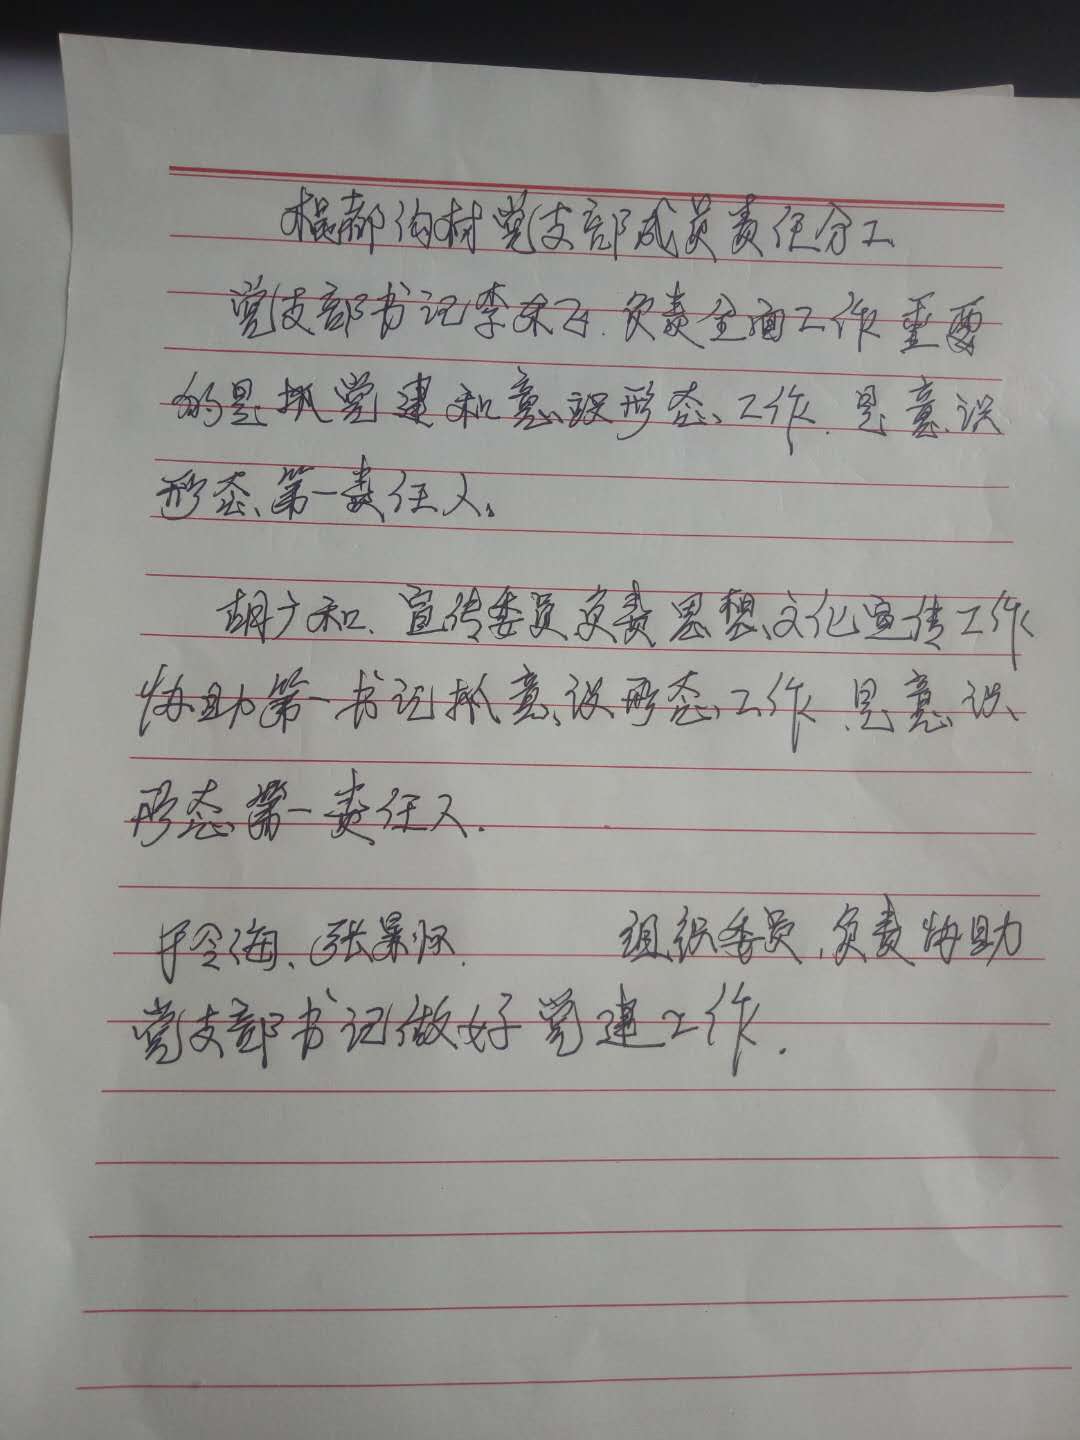 都沟村党支部成员责任分工
党支部书记李 负责全面工作重要
的是抓党建和意识形态工作.是意识
形态第一责任人。
胡广和、宣传委员负责思想文化宣传工作
协助第一书记抓意识形态工作.是意识
形态第一责任人.
海、张 组织委员,负责协助
党支部书记做好党建工作.